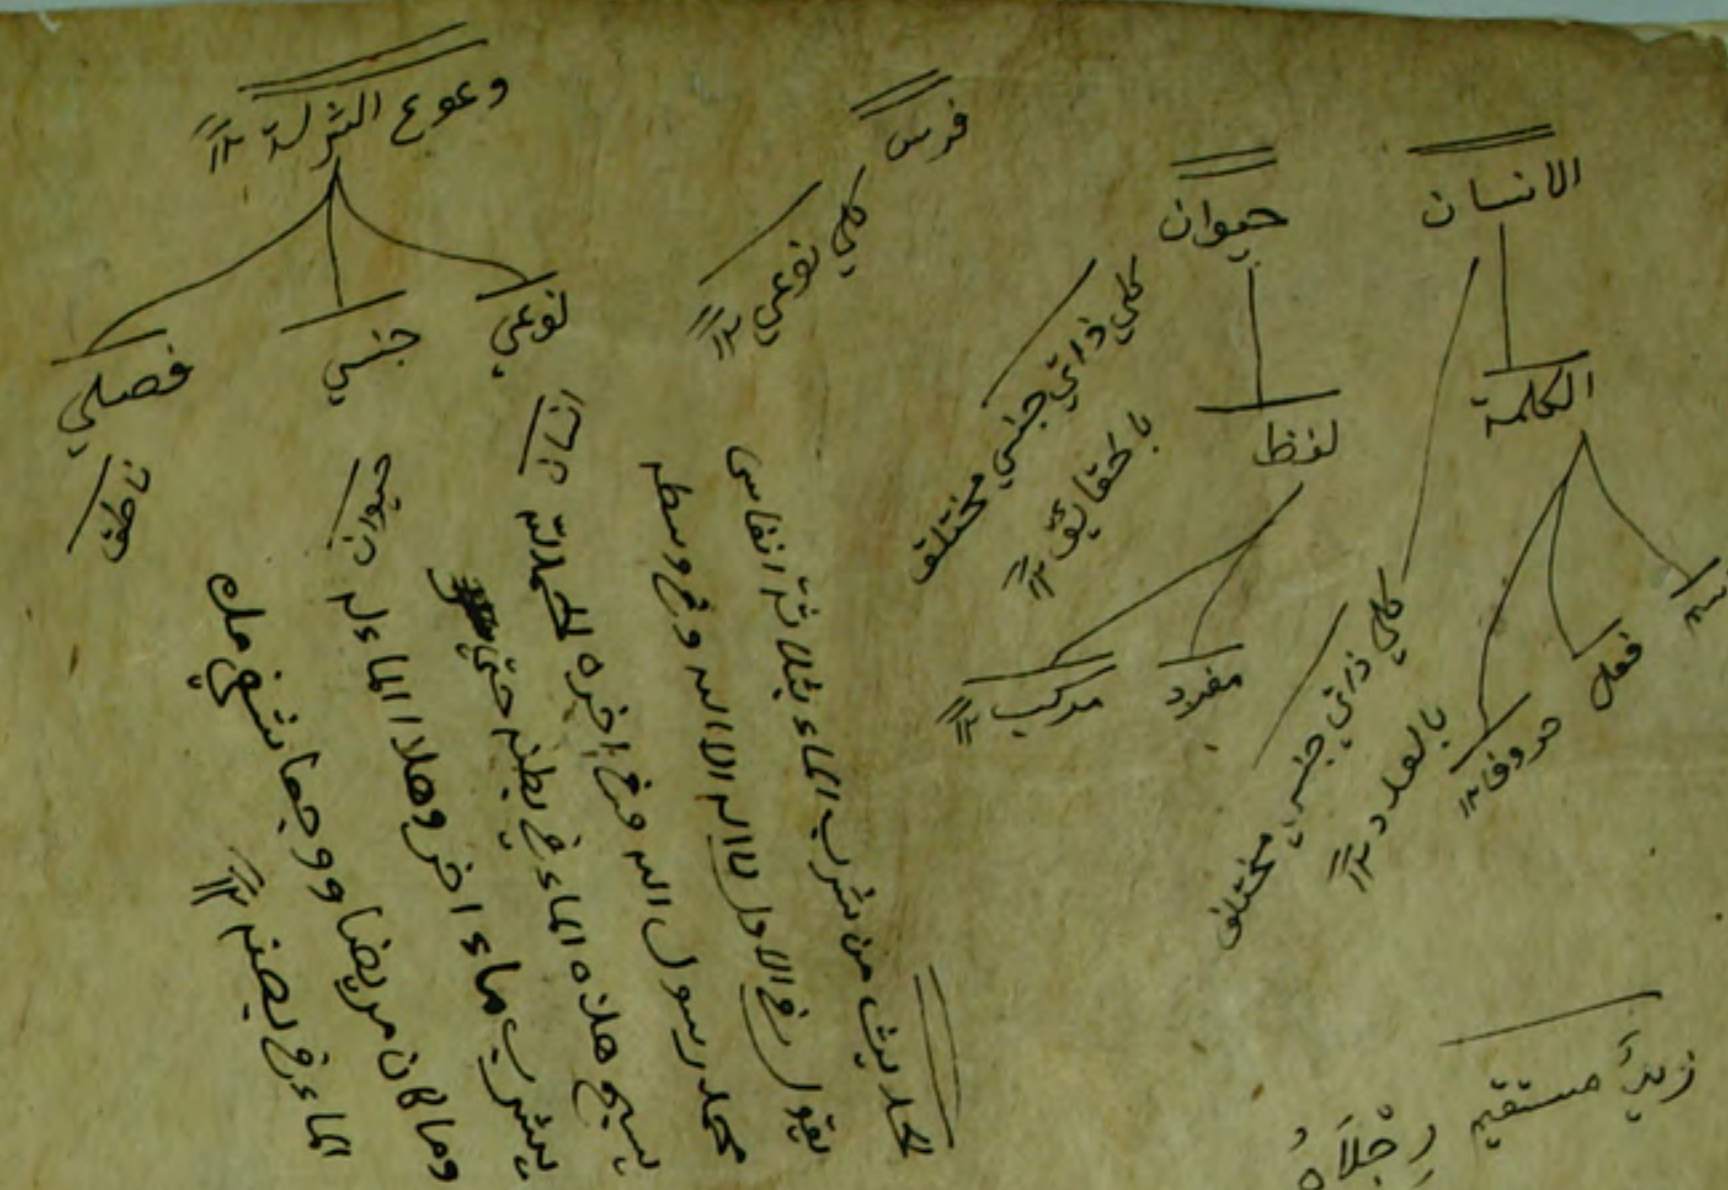 الانسان
الكلمة
فعل
حروف ١٢
كلي ذاتي جنسي مختلف
بالعدد ١٢
حيوان
لفظ
مفرد
مركب ١٢
كلي ذاتي جنسي مختلف
بالحقايق ١٢
فرس
كلي نوعي ١٢
١٢
نوعي
جنسي
فصلي
انسان
حيوان
ناطق
الحديث من شرب الماء بثلاثة انفاس
يقول في الاول لا اله الا الله وفي وسطه
محمد رسول الله وفي اخره الحمد لله
يسبح هذه الماء في بطنه حتي
يشرب ماء اخر وهذا الماء
وما كان مريضا ووجعا
الماء في ١٢
زيد مستقيم رِجْلَاهُ